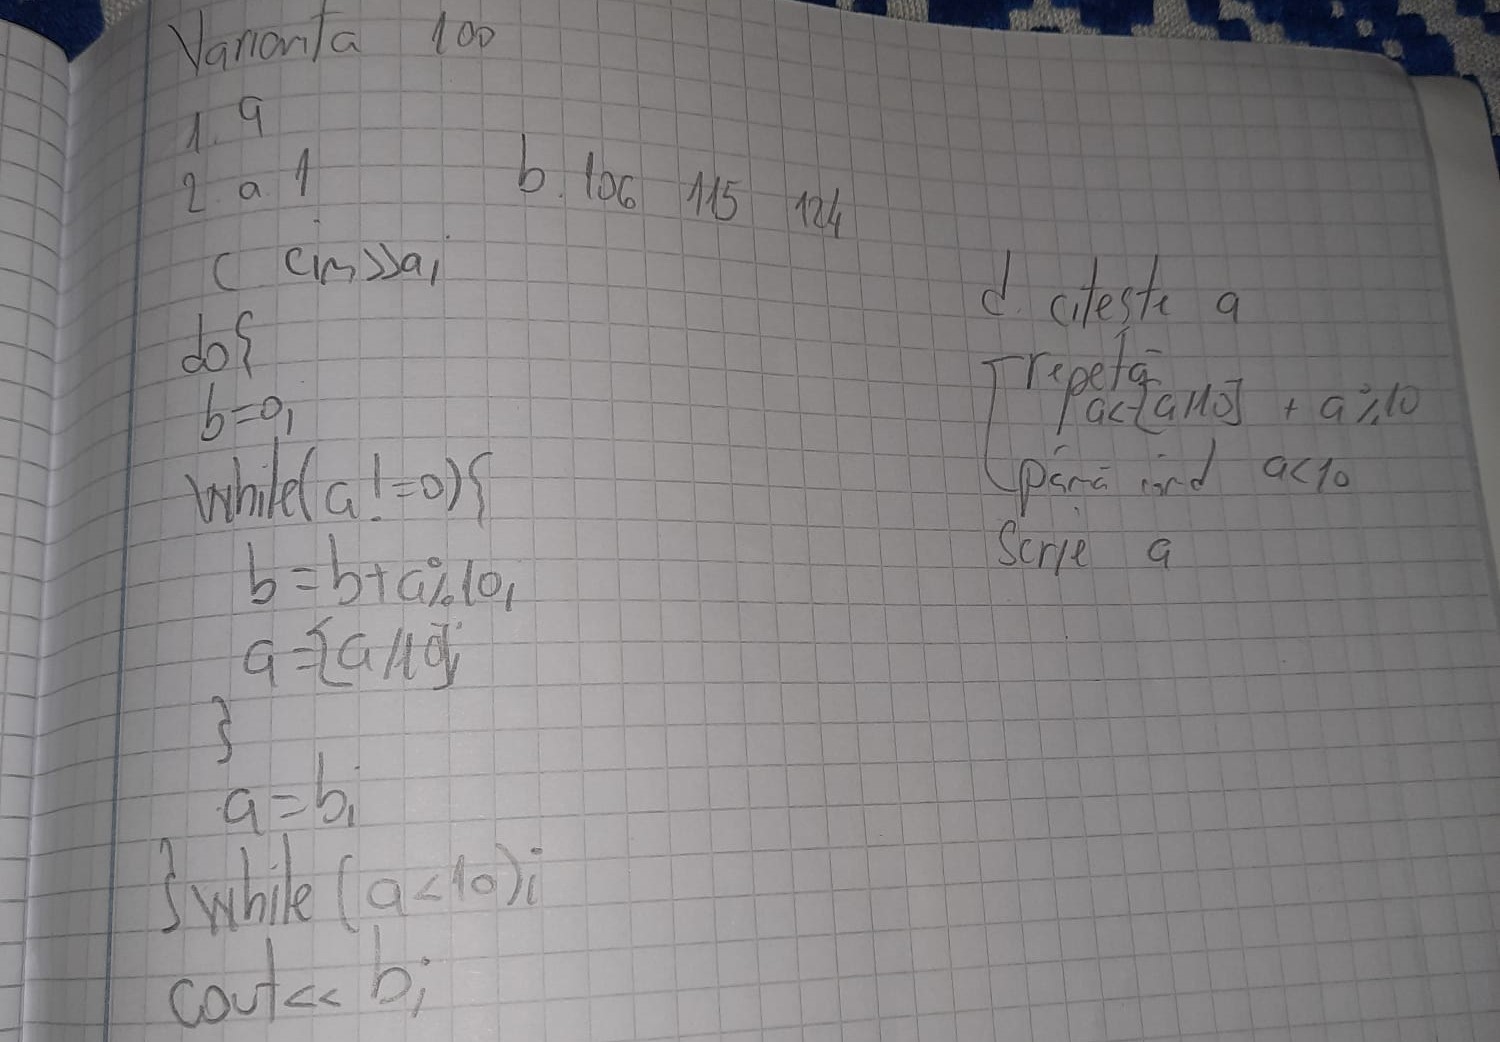 Varianta 100
1. a
2. a. 1 b. 106 115 124
c cin>>a;
do{
b=0;
while(a!=0){
b=b+a%10;
a=[a/10];
}
a=b;
}while(a<10);
cout<< b;
d. citeşte a
repetă
a<-[a/10] + a%10
până când a<10
Scrie a